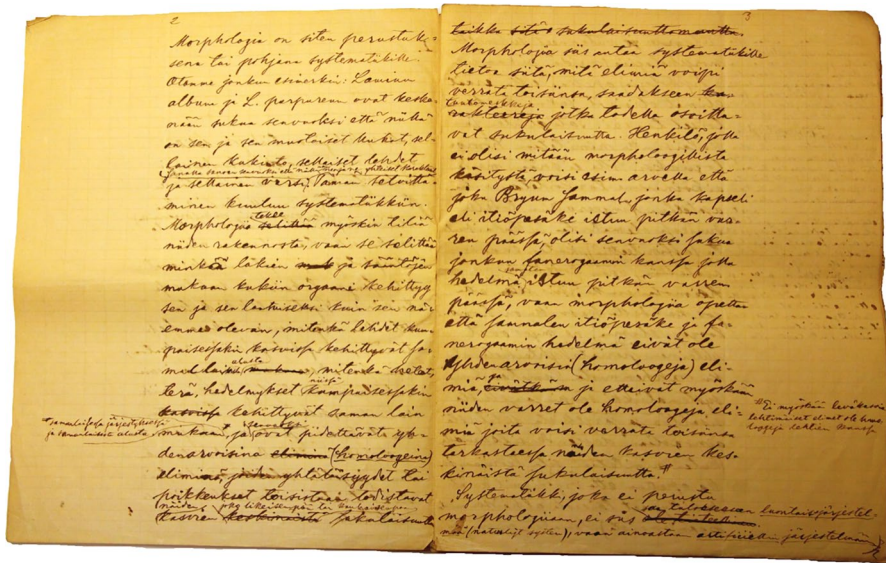 2
Morphologia on siten perustuk-
sena tai pohjana systematiikille.
Otamme jonkun esimerkin: Lamium
album ja L. purpureum ovat keske-
nään sukua seuraavaksi että niillä
on sen ja sen muotoiset kukat, sel-
lainen kukinto, sellaiset lehdet
ja sellainen varsi. Tämän selvittä-
minen kuuluu systematiikkiin.
tekee
Morphologia selittää myöskin tiliä
niiden rakennosta, vaan se selittää
minkä lakien ja sääntöjen
mukaan kukin orgaani kehittyy
sen ja sen laatuiseksi kuin sen näe-
mme olevan, mitenkä lehdet kum-
paisessakin kasvissa kehittyvät sa-
malla mitenkä heteet,
terä, hedelmykset kumpaisessakin
kasvissa kehittyvät saman lain
mukaan, ja ovat pidettävät yh-
denarvoisina eliminä (homologeina)
eliminä, joiden yhtäläisyydet tai
poikkeukset toisistaan todistavat
niiden
kasvien keskinäistä sukulaisuutta
samanlaisessa järjestyksessä
ja samanlaisista aluista
3
taikka sitä sukulaisuttomuutta.
Morphologia siis antaa systematiikille
tietoa siitä, mitä elimiä voipi
verrata toisiinsa, saadakseen ka-
tuntomerkkejä
rakteereja jotka todella osoitta-
vat sukulaisuutta. Henkilö, jolla
ei olisi mitään morphologillista
käsitystä, voisi esim. arvella että
joku Bryum sammal, jonka kapseli
eli itiöpesäke istuu pitkän var-
ren päässä, olisi seuraavaksi sukua
jonkun fanerogaamin kanssa jolla
hedelmä istuu pitkän varren
päässä, vaan morphologia opettaa
että sammalen itiöpesäke ja fa-
nerogaamin hedelmä eivät ole
yhdenarvoisia (homologeja) eli-
miä, ja etteivät myöskään
niiden varret ole homologeja eli-
miä joita voisi verrata toisiinsa
tarkastaessa näiden kasvien kes-
kinäistä sukulaisuutta.
Ei myöskään
lehtimäiset elimet ole homo-
logeja lehtien kanssa
Systematikki, joka ei perustu
morphologiaan, ei siis luontaisjärjestel-
mää (naturligt system), vaan ainoastaan artificiellin järjestelmään